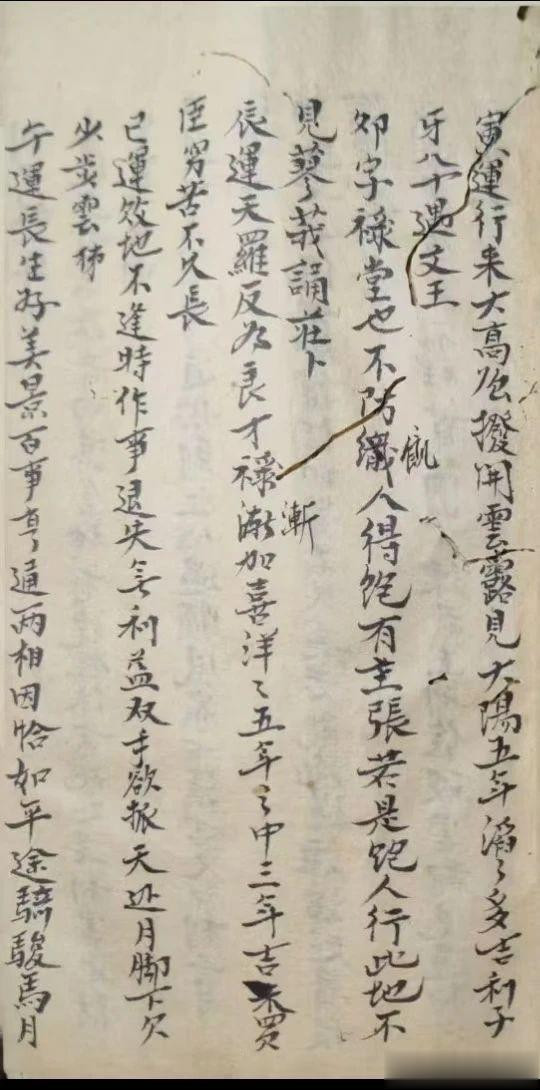 寅運行来大高強撥開雲霧見太陽五年滔々多吉利子
牙八十遇文王
卯字祿堂也不防纖人得飽有主張若是飽人行此地不
飢
見蓼莪誦莊卜
辰運天羅反為良才祿漸加喜洋々五年之中三年吉買
漸
臣窮苦不久長
巳運敗地不逢時作事退失無利益双手欲抓天边月脚下欠
少步雲梯
午運長生好美景百事亨通两相因恰如平途騎駿馬月